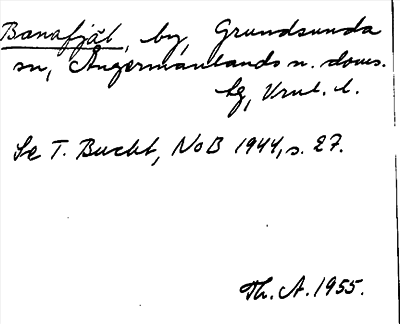 Banafjäl, by, Grundsunda
sn, Ångermanlands n. doms.
sg, Vrul. l.
Se T. Bucht, NoB 1944, s. 27.
Th. A. 1955.